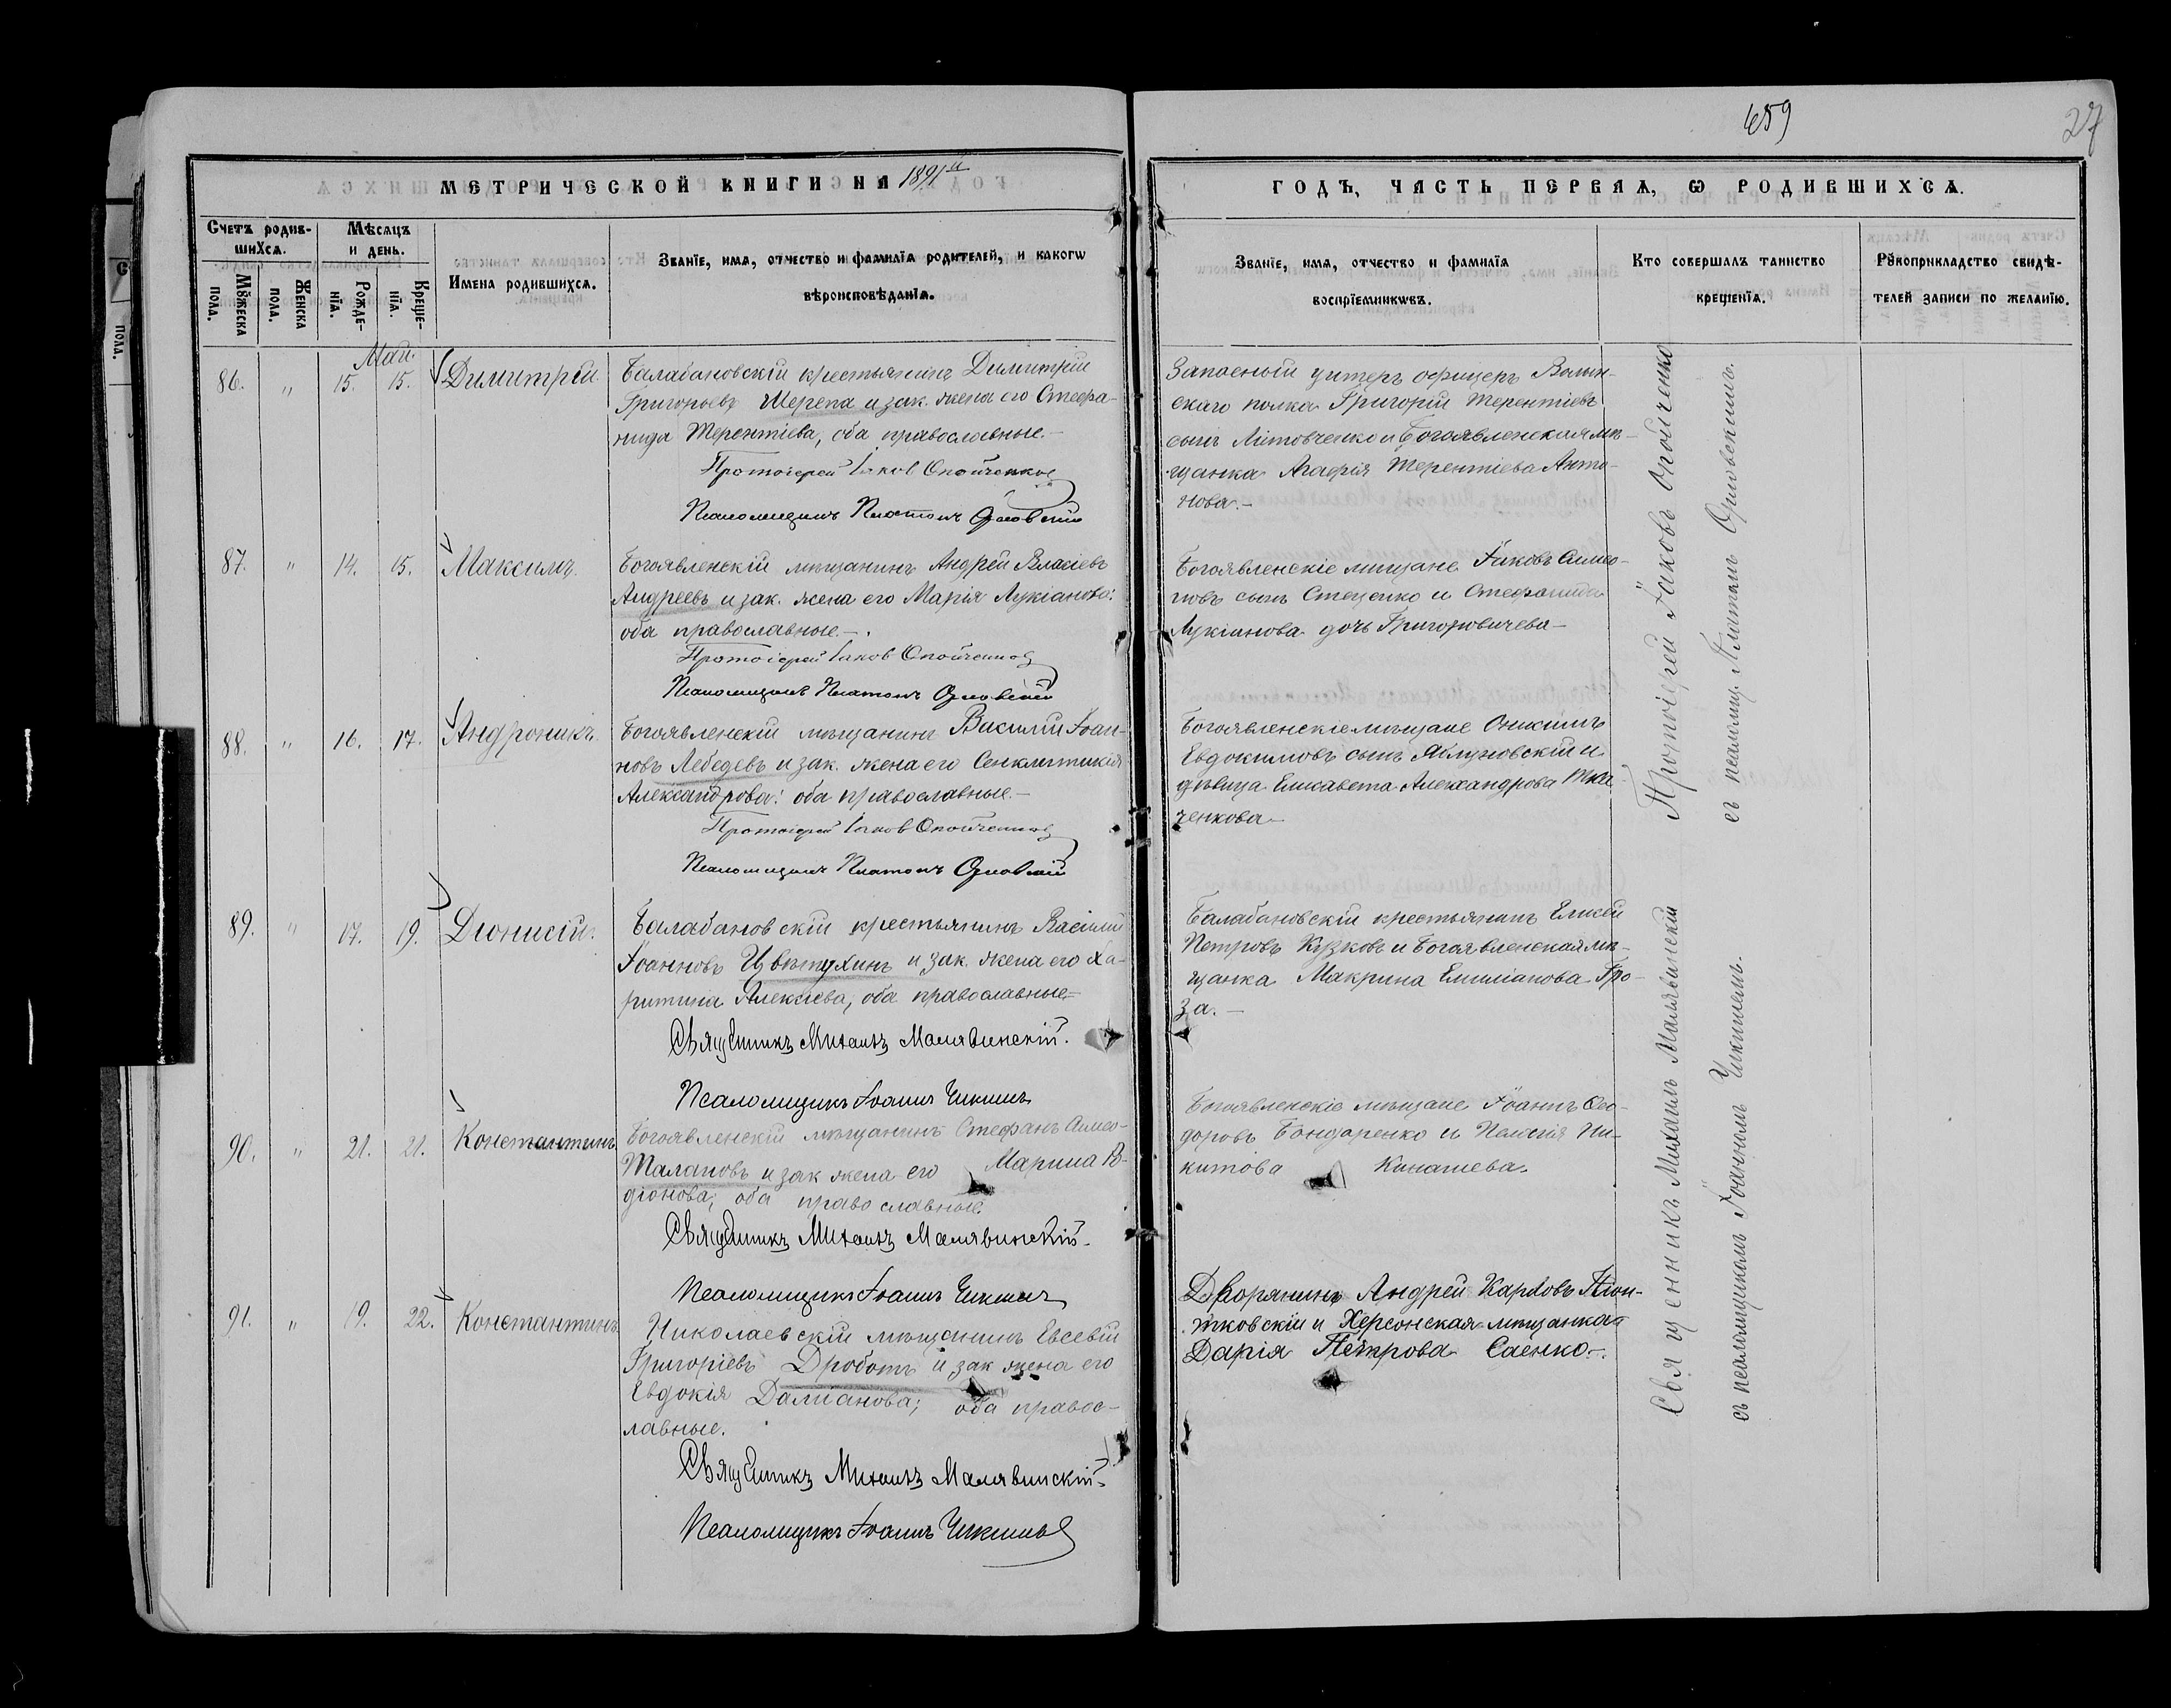 659
27
МЕТРИЧЕСКОЙ КНИГИ НА 1891й
ГОДЪ, ЧАСТЬ ПЕРВАЯ, Ѡ РОДИВШИХСѦ.
Счетъ родив-
шихсѧ.
Мѣсѧцъ
и день.
Мꙋжеска
пола.
Женска
пола.
Рожде-
нїѧ.
Креще-
нїѧ.
Имена родившихсѧ.
Званїе, имѧ, отчество и фамилїѧ родителей, и какогѡ
вѣроисповѣданїѧ.
Званїе, имѧ, отчество и фамилїѧ
воспрїемникѡвъ.
Кто совершалъ таинство
крещенїѧ.
Рꙋкоприкладство свидѣ-
телей записи по желанїю.
Май.
86. " 15. 15. Димитрій.
Балабановскій крестьянинъ Димитрій
Григорьевъ Шерепа и зак. жена его Стефа-
нида Терентіева, оба православные.-
Протоіерей Іаков Опойченков
Псаломщикъ Платонъ Орловскій
Запасный унтеръ офицеръ Волын-
скаго полка Григорій Терентіевъ
сынъ Литовченко и Богоявленская мѣ-
щанка Агафія Терентіева Анто-
нова.-
87. " 14. 15. Максимъ.
Богоявленскій мѣщанинъ Андрей Власіевъ
Андреевъ и зак. жена его Марія Лукіанова:
оба православные.-
Протоіерей Іаков Опойченков
Псаломщикъ Платонъ Орловскій
Богоявленскіе мѣщане Іаковъ Симео-
новъ сынъ Стеценко и Стефанида
Лукіанова дочь Григоровичева-
88. " 16. 17. Андроникъ.
Богоявленскій мѣщанинъ Василій Іоан-
новъ Лебедевъ и зак. жена его Сенклитикія
Александрова: оба православные.-
Протоіерей Іаков Опойченков
Псаломщикъ Платонъ Орловскій
Богоявленскіе мѣщане Онисимъ
Евдокимовъ сынъ Яблуновскій и
дѣвица Елисавета Александрова Тка-
ченкова-
Протоіерей Іаковъ Опойченко
съ псаломщ. Платономъ Орловскимъ.
89. " 17. 19. Діонисій.
Балабановскій крестьянинъ Василій
Іоанновъ Цвѣтухинъ и зак. жена его Ха-
ритина Алексіева, оба православные-
Священникъ Михаилъ Малявинскій.
Псаломщикъ Іоаннъ Чикинъ
Балабановскій крестьянинъ Елисей
Петровъ Кузковъ и Богоявленская мѣ-
щанка Макрина Емиліанова Гро-
за.-
90. " 21. 21. Константинъ
Богоявленскій мѣщанинъ Стефанъ Симео-
Талановъ и зак жена его Марина Ро-
діонова; оба православные.
Священникъ Михаилъ Малявинскій.
Псаломщикъ Іоаннъ Чикинъ
Богоявленскіе мѣщане Іоаннъ Ѳео-
доровъ Бондаренко и Пелагія Ни-
китова Кинашева.
91. " 19. 22. Константинъ
Николаевскій мѣщанинъ Евсевій
Григоріевъ Дроботъ и зак жена его
Евдокія Даміанова; оба правос-
лавные.
Священникъ Михаилъ Малявинскій.
Псаломщикъ Іоаннъ Чикинъ
Дворянинъ Андрей Карловъ Піон-
тковскій и Херсонская мѣщанка
Дарія Петрова Саенко.-
Священникъ Михаилъ Малявинскій
съ псаломщикомъ Іоанномъ Чикинымъ.